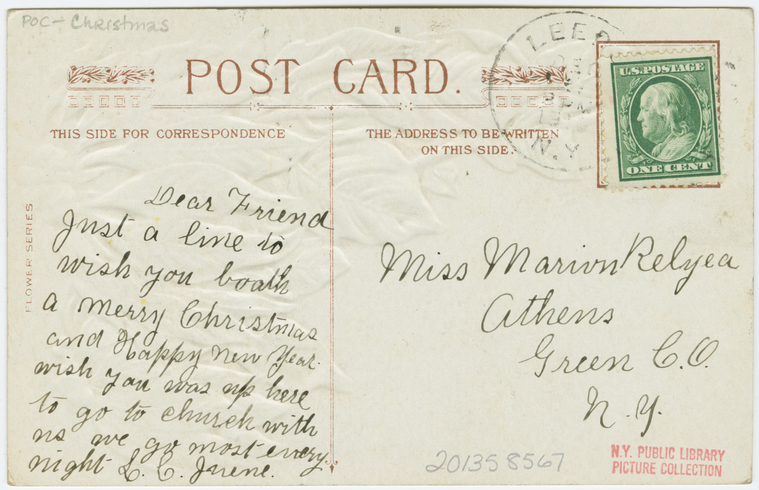 POC - Christmas
POST CARD.
THIS SIDE FOR CORRESPONDENCE
THE ADDRESS TO BE WRITTEN
ON THIS SIDE.
LEEDS
N.Y.
U.S. POSTAGE
ONE CENT
FLOWER SERIES
Dear Friend
Just a line to
wish you boath
a merry Christmas
and Happy New Year.
wish you was up here
to go to church with
us we go most every
night L. C.
Miss Marion Relyea
Athens
Green C.O.
N.Y.
201358567
N.Y. PUBLIC LIBRARY
PICTURE COLLECTION